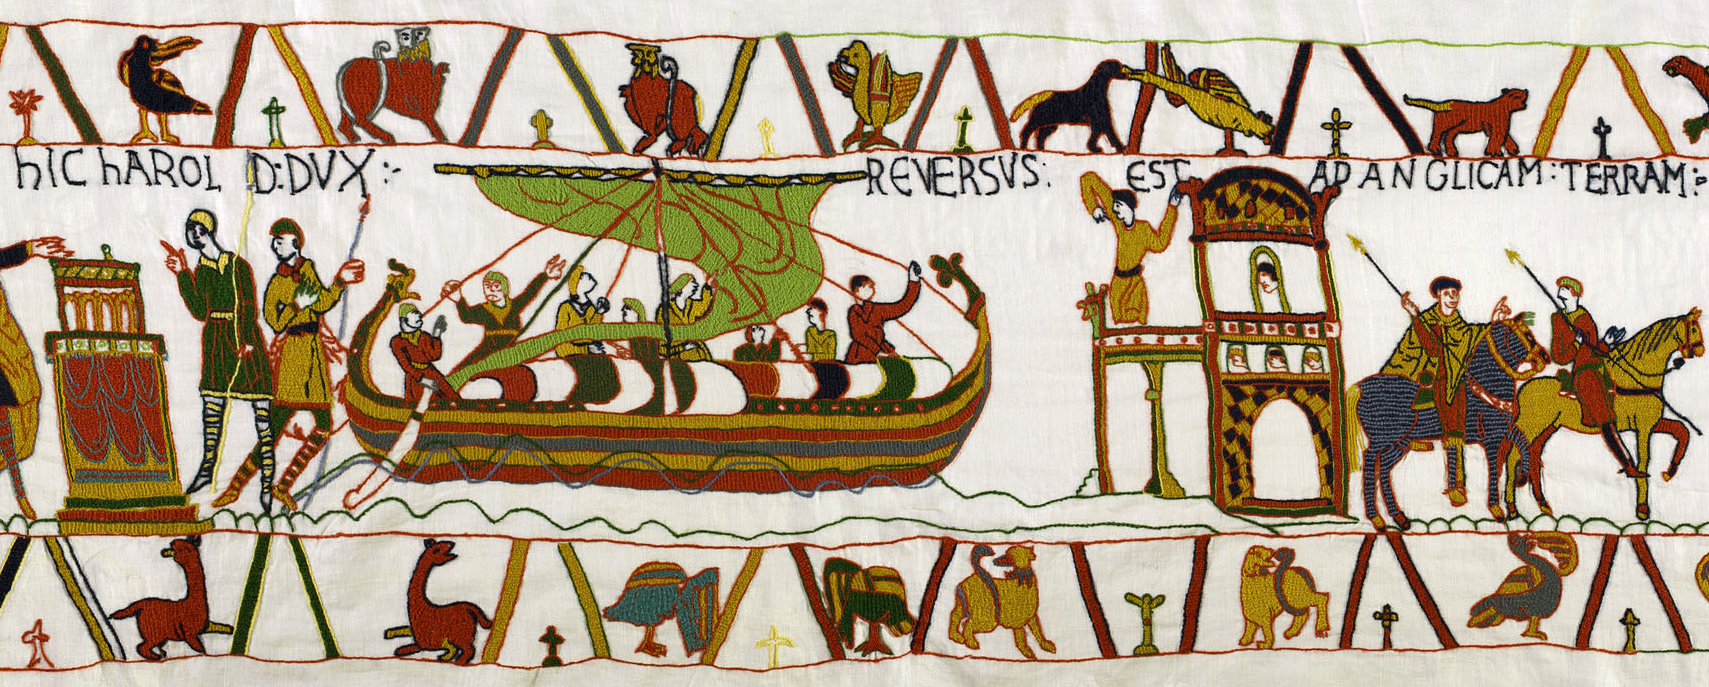 hIC hAROLD:DVX:- REVERSVS: EST AD ANGLICAM:TERRAM:-